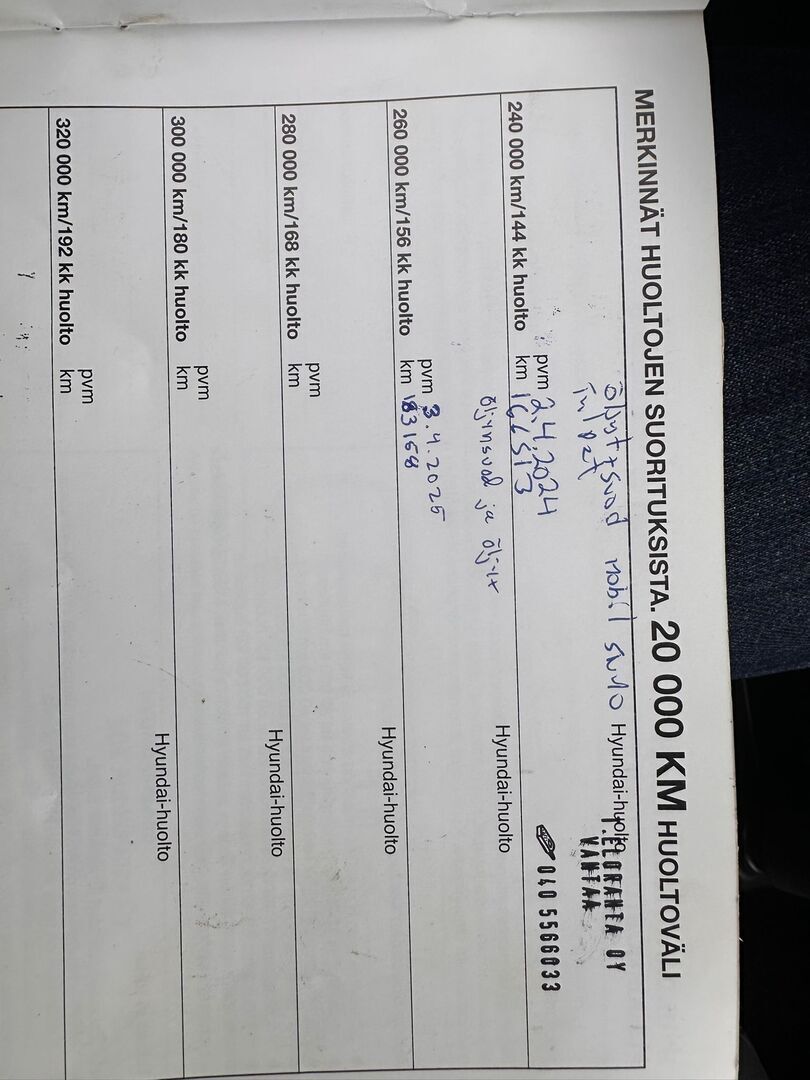 MERKINNÄT HUOLTOJEN SUORITUKSISTA. 20 000 KM HUOLTOVÄLI
Öljyt + suod Mobil 5W40 Hyundai-huolto
Tulpat
T. ELORANTA OY
VANTAA
040 5566033
240 000 km/144 kk huolto
pvm 2.4.2024
km 166513
öljynsuod ja öljyt
Hyundai-huolto
260 000 km/156 kk huolto
pvm 3.4.2025
km 183168
Hyundai-huolto
280 000 km/168 kk huolto
pvm
km
Hyundai-huolto
300 000 km/180 kk huolto
pvm
km
Hyundai-huolto
320 000 km/192 kk huolto
pvm
km